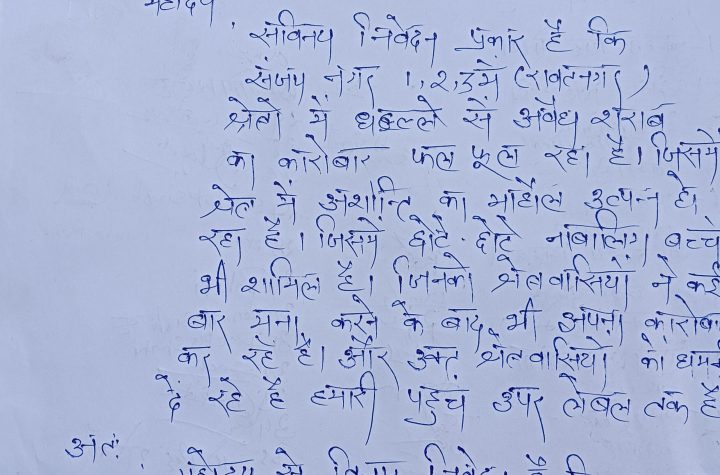 महोदय,
सविनय निवेदन प्रकार है कि
संजय नगर 1,2,3में (रावतनगर)
श्रेतों में धडल्ले से अवैध शराब
का कारोबार फल फूल रहा है। जिसमें
श्रेत में अशान्ति का माहौल उत्पन्न हो
रहा है। जिसमें छोटे-छोटे नाबालिग बच्चे
भी शामिल है। जिनको श्रेतवासियों ने कई
बार मना करने के बाद भी अपना कारोबा
कर रहे है। और उक्त श्रेतवासियों को धमकी
दे रहे है हमारी पहुंच उपर लेबल तक है
अतः